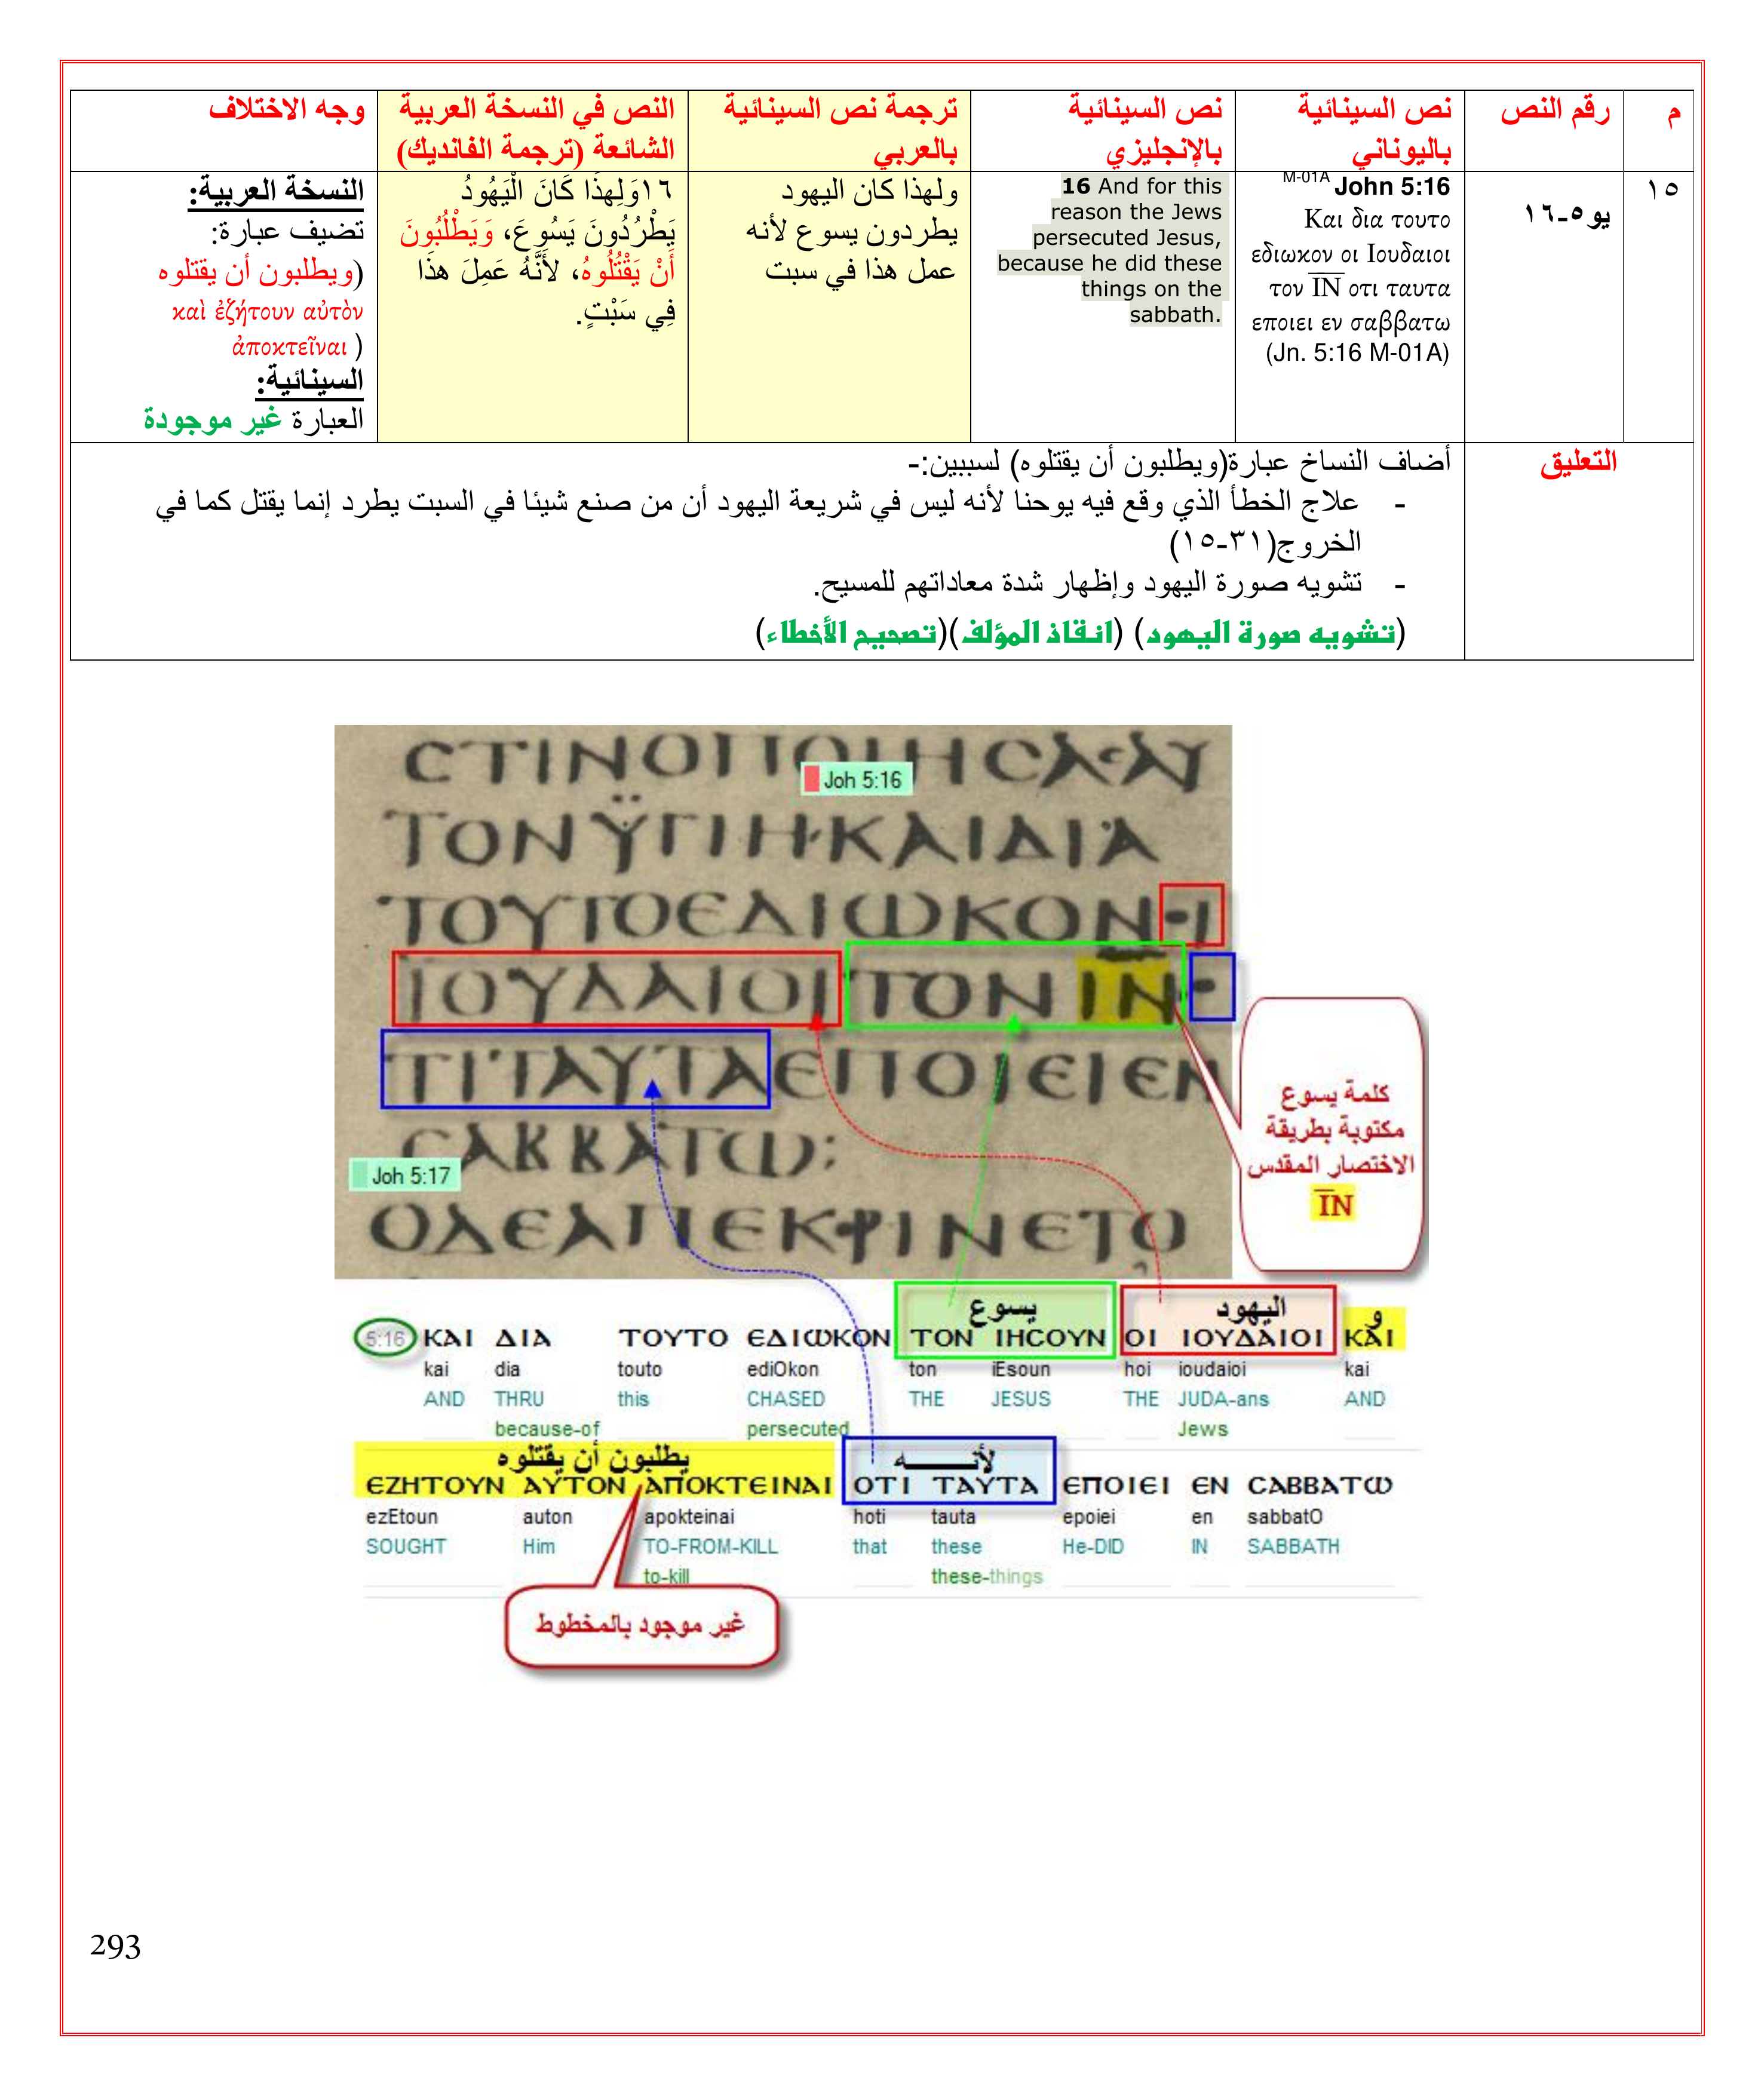 م
رقم النص
نص السينائية
باليوناني
نص السينائية
بالإنجليزي
ترجمة نص السينائية
بالعربي
النص في النسخة العربية
الشائعة (ترجمة الفانديك)
وجه الاختلاف
١٥
يو٥-١٦
M-01A John 5:16
Και δια τουτο
εδιωκον οι Ιουδαιοι
τον ΙΝ οτι ταυτα
εποιει εν σαββατω
(Jn. 5:16 M-01A)
16 And for this
reason the Jews
persecuted Jesus,
because he did these
things on the
sabbath.
ولهذا كان اليهود
يطردون يسوع لأنه
عمل هذا في سبت
١٦وَلِهذَا كَانَ الْيَهُودُ
يَطْرُدُونَ يَسُوعَ، وَيَطْلُبُونَ
أَنْ يَقْتُلُوهُ، لأَنَّهُ عَمِلَ هذَا
فِي سَبْتٍ.
النسخة العربية:
تضيف عبارة:
(ويطلبون أن يقتلوه
καὶ ἐζήτουν αὐτὸν
ἀποκτεῖναι )
السينائية:
العبارة غير موجودة
التعليق
أضاف النساخ عبارة(ويطلبون أن يقتلوه) لسببين:-
- علاج الخطأ الذي وقع فيه يوحنا لأنه ليس في شريعة اليهود أن من صنع شيئا في السبت يطرد إنما يقتل كما في
الخروج(٣١-١٥)
- تشويه صورة اليهود وإظهار شدة معاداتهم للمسيح.
(تشويه صورة اليهود) (انقاذ المؤلف)(تصحيح الأخطاء)
CΤΙΝΟΠΟΙΗCΑ·ΑΥ
Joh 5:16
ΤΟΝΫΓΙΗ·ΚΑΙΔΙΑ
ΤΟΥΤΟΕΔΙΩΚΟΝ·Ι
ΙΟΥΔΑΙΟΙΤΟΝΙΝ·
ΤΙΤΑΥΤΑΕΠΟΙΕΙΕΝ
CΑΒΒΑΤΩ:
Joh 5:17
ΟΔΕΑΠΕΚΡΙΝΕΤΟ
كلمة يسوع
مكتوبة بطريقة
الاختصار المقدس
ΙΝ
يسوع اليهود و
5:16 ΚΑΙ ΔΙΑ ΤΟΥΤΟ ΕΔΙΩΚΟΝ ΤΟΝ ΙΗCΟΥΝ ΟΙ ΙΟΥΔΑΙΟΙ ΚΑΙ
kai dia touto ediOkon ton iEsoun hoi ioudaioi kai
AND THRU this CHASED THE JESUS THE JUDA-ans AND
because-of persecuted Jews
يطلبون أن يقتلوه لأنـــــه
ΕΖΗΤΟΥΝ ΑΥΤΟΝ ΑΠΟΚΤΕΙΝΑΙ ΟΤΙ ΤΑΥΤΑ ΕΠΟΙΕΙ ΕΝ CΑΒΒΑΤΩ
ezEtoun auton apokteinai hoti tauta epoiei en sabbatO
SOUGHT Him TO-FROM-KILL that these He-DID IN SABBATH
to-kill these-things
غير موجود بالمخطوط
293